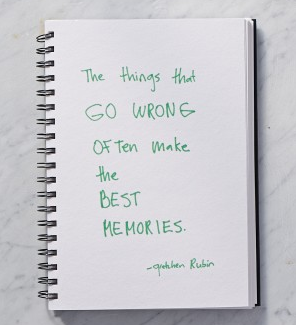 The things that
GO WRONG
OFTen make
the
BEST
MEMORIES.
-gretchen Rubin